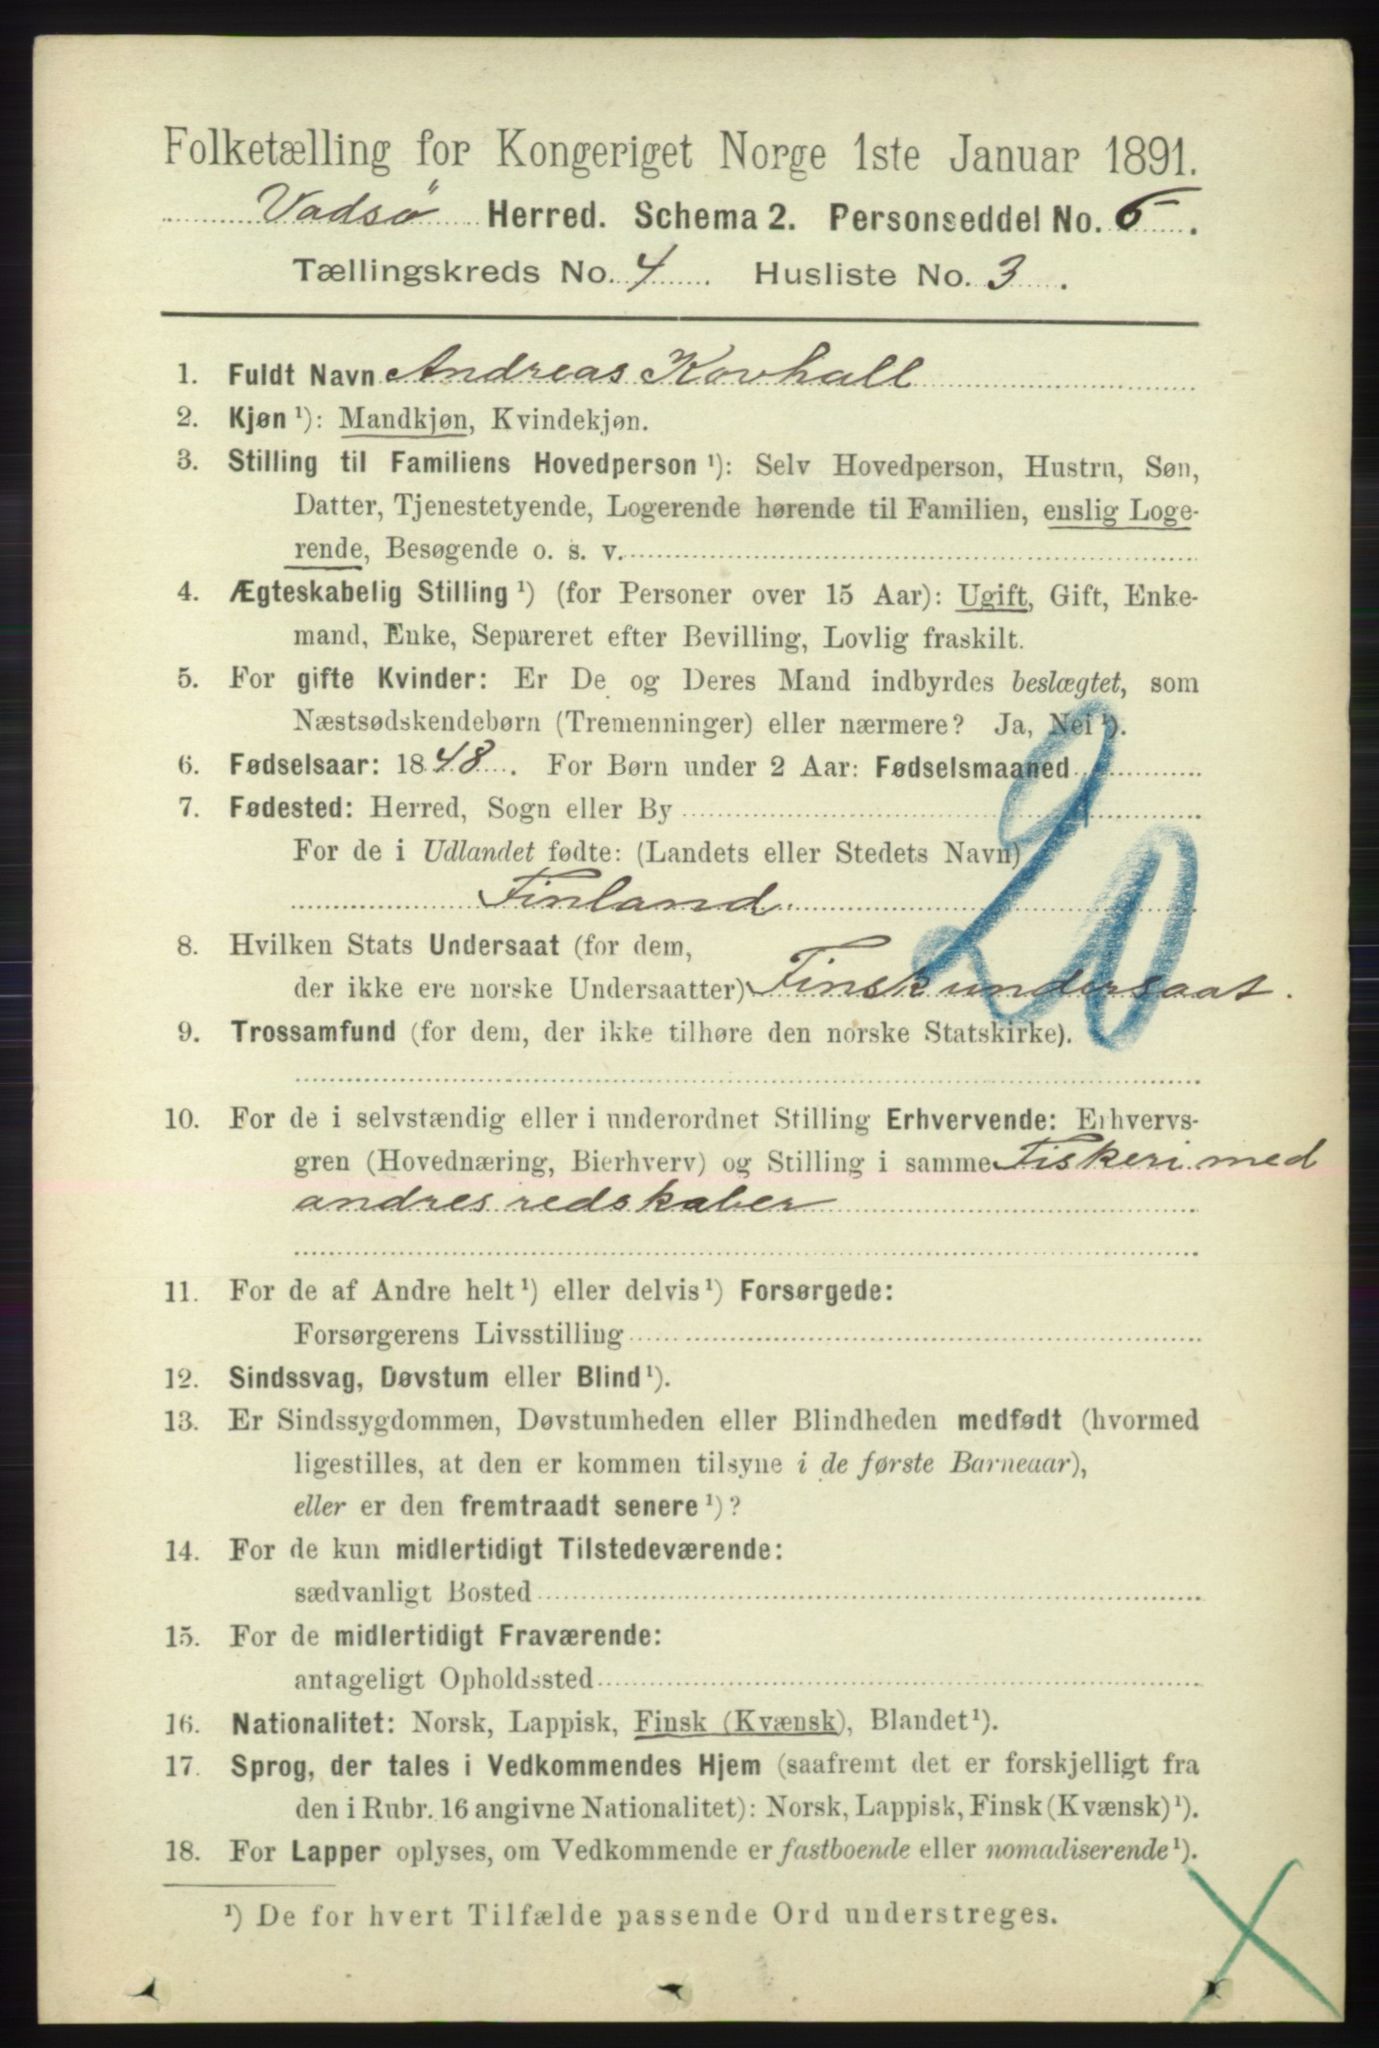 Folketælling for Kongeriget Norge 1ste Januar 1891.
Vadsö Herred. Schema 2. Personseddel No. 6.
Tællingskreds No. 4 Husliste No. 3.
1. Fuldt Navn Andreas Kovhall
2. Kjøn ¹): Mandkjøn, Kvindekjøn.
3. Stilling til Familiens Hovedperson ¹): Selv Hovedperson, Hustru, Søn,
Datter, Tjenestetyende, Logerende hørende til Familien, enslig Loge-
rende, Besøgende o. s. v.
4. Ægteskabelig Stilling ¹) (for Personer over 15 Aar): Ugift, Gift, Enke-
mand, Enke, Separeret efter Bevilling, Lovlig fraskilt.
5. For gifte Kvinder: Er De og Deres Mand indbyrdes beslægtet, som
Næstsødskendebørn (Tremenninger) eller nærmere? Ja, Nei ¹).
6. Fødselsaar: 1848. For Børn under 2 Aar: Fødselsmaaned
7. Fødested: Herred, Sogn eller By
For de i Udlandet fødte: (Landets eller Stedets Navn)
Finland
20
8. Hvilken Stats Undersaat (for dem,
der ikke ere norske Undersaatter) Finsk undersaat.
9. Trossamfund (for dem, der ikke tilhøre den norske Statskirke).
10. For de i selvstændig eller i underordnet Stilling Erhvervende: Erhvervs-
gren (Hovednæring, Bierhverv) og Stilling i samme Fiskeri med
andres redskaber
11. For de af Andre helt ¹) eller delvis ¹) Forsørgede:
Forsørgerens Livsstilling
12. Sindssvag, Døvstum eller Blind ¹).
13. Er Sindssygdommen, Døvstumheden eller Blindheden medfødt (hvormed
ligestilles, at den er kommen tilsyne i de første Barneaar),
eller er den fremtraadt senere ¹)?
14. For de kun midlertidigt Tilstedeværende:
sædvanligt Bosted
15. For de midlertidigt Fraværende:
antageligt Opholdssted
16. Nationalitet: Norsk, Lappisk, Finsk (Kvænsk), Blandet ¹).
17. Sprog, der tales i Vedkommendes Hjem (saafremt det er forskjelligt fra
den i Rubr. 16 angivne Nationalitet): Norsk, Lappisk, Finsk (Kvænsk) ¹).
18. For Lapper oplyses, om Vedkommende er fastboende eller nomadiserende ¹).
¹) De for hvert Tilfælde passende Ord understreges.